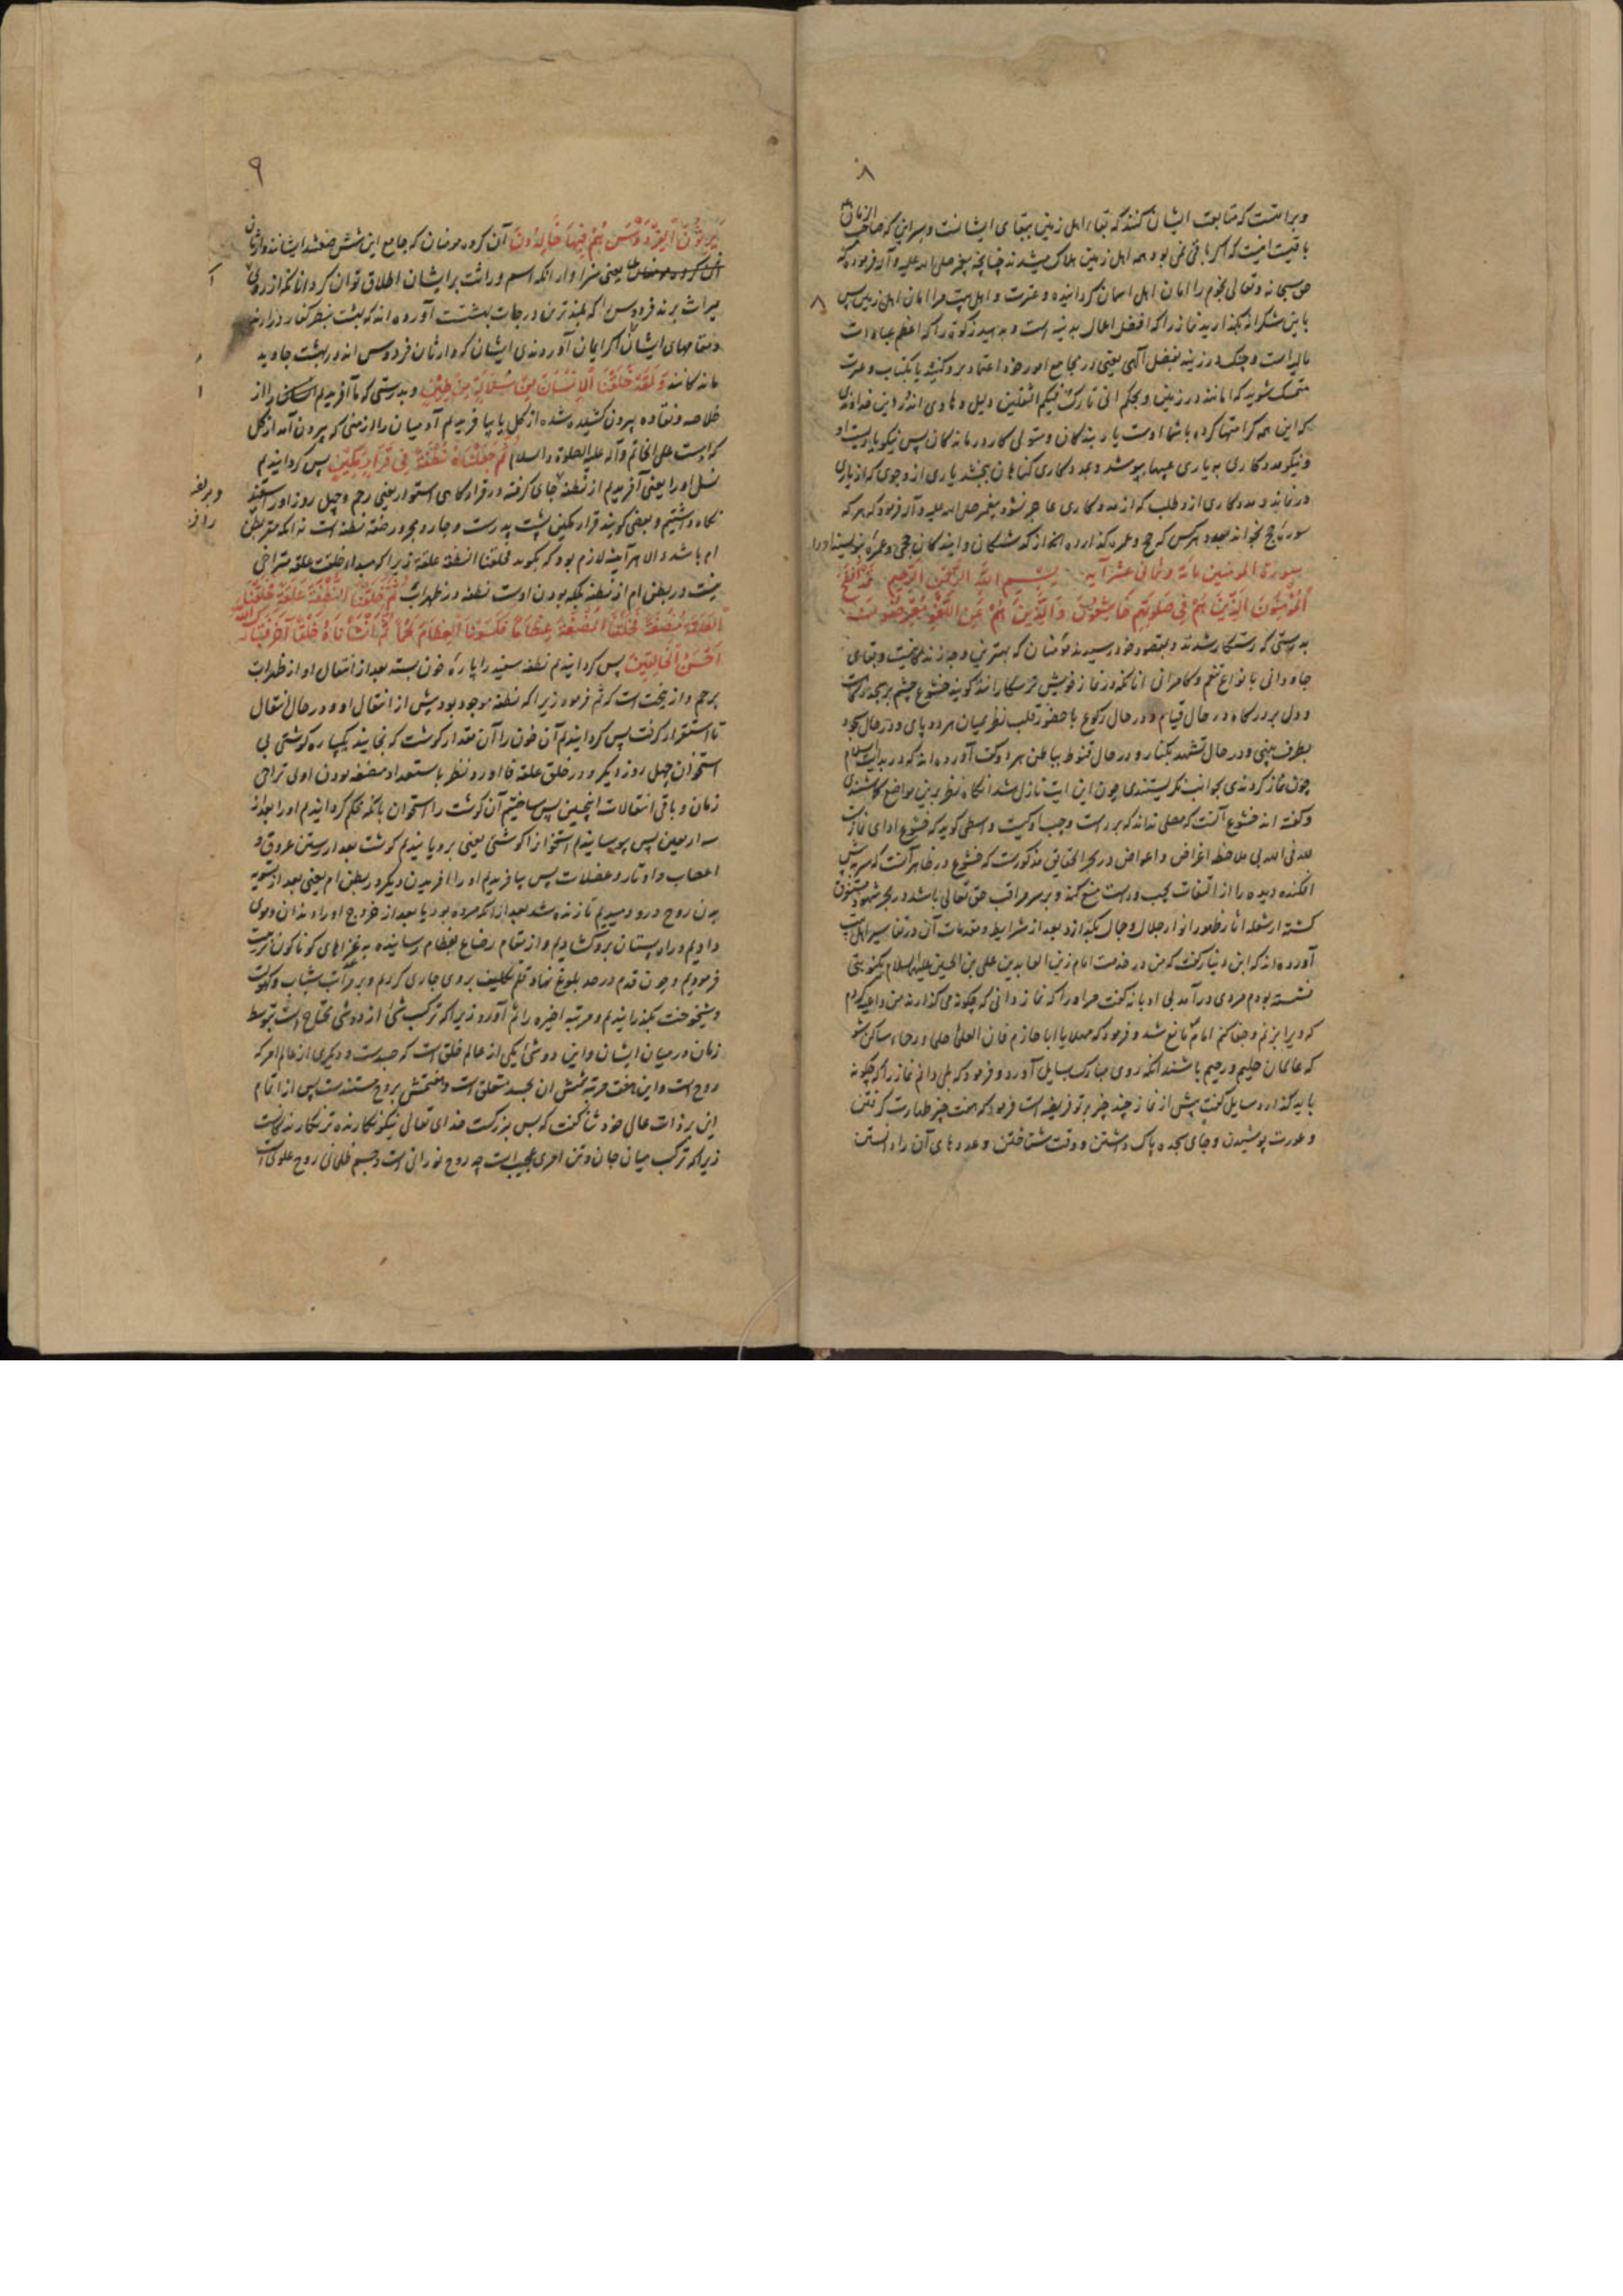 ۸
و براست که متابعت ایشان کنند که بقاء اهل زمین ببقای ایشانست
باقیست امنیت که اگر باقی نمی بود همه اهل زمین هلاک میشدند چنانچه پیغمبر صلی الله علیه و آله فرموده که
حق سبحانه و تعالی نجوم را امان اهل اسمان کردانیده و عترت و اهل بیت مرا امان اهل زمین پس
باین شکرانه بگذارید نماز را که افضل اعمال بدنیه است و بدهید زکوة را که اعظم عبادات
مالیه است و چنک در زنید بفضل الهی یعنی در مجامع امور خود اعتماد برو کنید یا بکتاب و عترت
متمسک شوید که امانند در زمین و بحکم انی تارک فیکم الثقلین دلیل و هادی اند
که این همه کرامتها کرده باشما اوست یار بندکان و متولی کار درماندکان پس نیکو یاریست او
و نیکو مددکاری به یاری عیبها بپوشد و بمددکاری کناهان ببخشد یاری ازو جوی که از یاری
درنماند و مددکاری ازو طلب که از مددکاری عاجز نشود پیغمبر صلی الله علیه و آله فرمود که هر که
سوره حج بخواند بعدد هر کس که حج و عمره کذارده
سورة المومنین مائة و ثمانی عشر آیه بسم الله الرحمن الرحیم قد افلح
المؤمنون الذین هم فی صلوتهم خاشعون و الذین هم عن اللغو معرضون
بدرستی که رستکار شدند و بمقصود خود رسیدند مؤمنان که بهترین
جاودانی بانواع تنعم و کامرانی انانکه در نماز خویش ترسکارانند کویند خشوع چشم بر سجده کاهست
و دل بر درکاه در حال قیام و در حال رکوع با حضور قلب نظر میان هر دو پای و در حال سجود
بطرف بینی و در حال تشهد بکنار و در حال قنوت بباطن هر دو کف آورده اند که در بدایت اسلام
چون نماز کردندی بجوانب نکریستندی چون این ایت نازل شد
و کفته اند خشوع آنست که مصلی نداند که بر راست و چپ او کیست و واسطی کوید که خشوع ادای نمازست
لله فی الله بی ملاحظه اغراض و اعواض در بحر الحقایق مذکورست که خشوع در ظاهر آنست که سر در پیش
افکنده دیده را از التفات بچپ و راست منع کند و بر سر مراقب حق تعالی باشد در بحر شهود مستغرق
کشته از شعله آثار ظهور انوار جلال و جمال بکدازد بعد از شرایط و مقدمات آن در تفاسیر اهل بیت
آورده اند که ابن دینار کفت که من در خدمت امام زین العابدین علی بن الحسین علیه السلام
نشسته بودم مردی در آمد بی ادبانه کفت مراورا که نماز دانی که چکونه می کذارند
که ویرا برنم و جفا کنم امام مانع شد و فرمود که مهلا یا ابا حازم فان العلماء حلماء رحماء ساکن شو
که عالمان حلیم و رحیم باشند انکه روی مبارک بسایل آورد و فرمود که بلی دانم نماز را که چکونه
باید کذارد سایل کفت پیش از نماز چند چیز بر تو فریضه است فرمود که هفت چیز طهارت کرفتن
و عورت پوشیدن و جای سجده پاک داشتن و وقت شناختن و عددهای آن را دانستن
۹
یرثون الفردوس هم فیها خالدون آن کروه مومنان که جامع این شش صفتند ایشانند وارثان
یعنی سزاوار انکه اسم وراثت بر ایشان اطلاق توان کرد انانکه از روی
میراث برند فردوس را که بلندترین درجات بهشتست آورده اند که
و مقامهای ایشان اکر ایمان آوردندی ایشان که وارثان فردوس اند در بهشت جاوید
مانندکانند و لقد خلقنا الانسان من سلالة من طین و بدرستی که ما آفریدیم انسان را از
خلاصه و نقاوه بیرون کشیده شده از کل یا بیافریدیم آدمیان را از منی که بیرون آمد از کل
که آدمست علی الخاتم و آله علیه الصلوة و السلام ثم جعلناه نطفة فی قرار مکین پس کردانیدیم
نسل او را یعنی آفریدیم از نطفه جای کرفته در قرارکاهی استوار یعنی رحم و چهل روز او را سفید
نکاه داشتیم و بعضی کویند قرار مکین پشت پدرست و جار و مجرور صفة نطفه است نه انکه مقر بطن
ام باشد و الا هر آینه لازم بود که بکوید فخلقنا النطفة علقة زیرا که مبداء خلقت علقه متراخی
نیست در بطن ام از نطفه بلکه بودن اوست نطفه در ظهر اب ثم خلقنا النطفة علقة فخلقنا
العلقة مضغة فخلقنا المضغة عظاما فکسونا العظام لحما ثم انشأناه خلقا آخر فتبارک الله
احسن الخالقین پس کردانیدیم نطفه سفید را پاره خون بسته بعد از انتقال او از ظهر اب
برحم و از ینجهت است که ثم فرمود زیرا که نطفه موجود بود پیش از انتقال او و در حال انتقال
تا استقرار کرفت پس کردانیدیم آن خون را آن مقدار کوشت که بخایند یکپاره کوشتی بی
استخوان چهل روز دیکر و در خلق علقه فا آورد نظر باستعداد مضغه بودن او بی تراخی
زمان و باقی انتقالات اینچنین پس ساختیم آن کوشت را استخوان بانکه محکم کردانیدیم او را بعد از
سه اربعین پس بپوسانیدیم استخوانرا کوشتی یعنی برویانیدیم کوشت بعد از رستن عروق و
اعصاب و اوتار و عضلات پس بیافریدیم او را آفریدن دیکر در بطن ام یعنی بعد از تسویه
بدن روح درو دمیدیم تا زنده شد بعد از انکه مرده بود یا بعد از خروج او را دندان و موی
دادیم و راه پستان برو کشادیم و از مقام رضاع بفطام رسانیده به غذاهای کوناکون تربیت
فرمودیم و چون قدم در حد بلوغ نهاد قلم تکلیف بروی جاری کردیم و بر مراتب شباب و کهولت
و شیخوخت بکذرانیدیم و مرتبه اخیره را ثم آورد زیرا که ترکب شئ از دو شی محتاج است بتوسط
زمان در میان ایشان و این دو شئ یکی از عالم خلق است که جسدست و دیکری از عالم امر که
روح است و این هفت مرتبه ششش ان بجسد متعلق است و هفتمش بروح مستندست پس از اتمام
این بر ذات عالی خود ثنا کفت که بس بزرکست خدای تعالی نیکو نکارنده تر نکارندکانست
زیرا که ترکب میان جان و تن امری عجیب است چه روح نورانی است و جسم ظلمانی روح علوی است